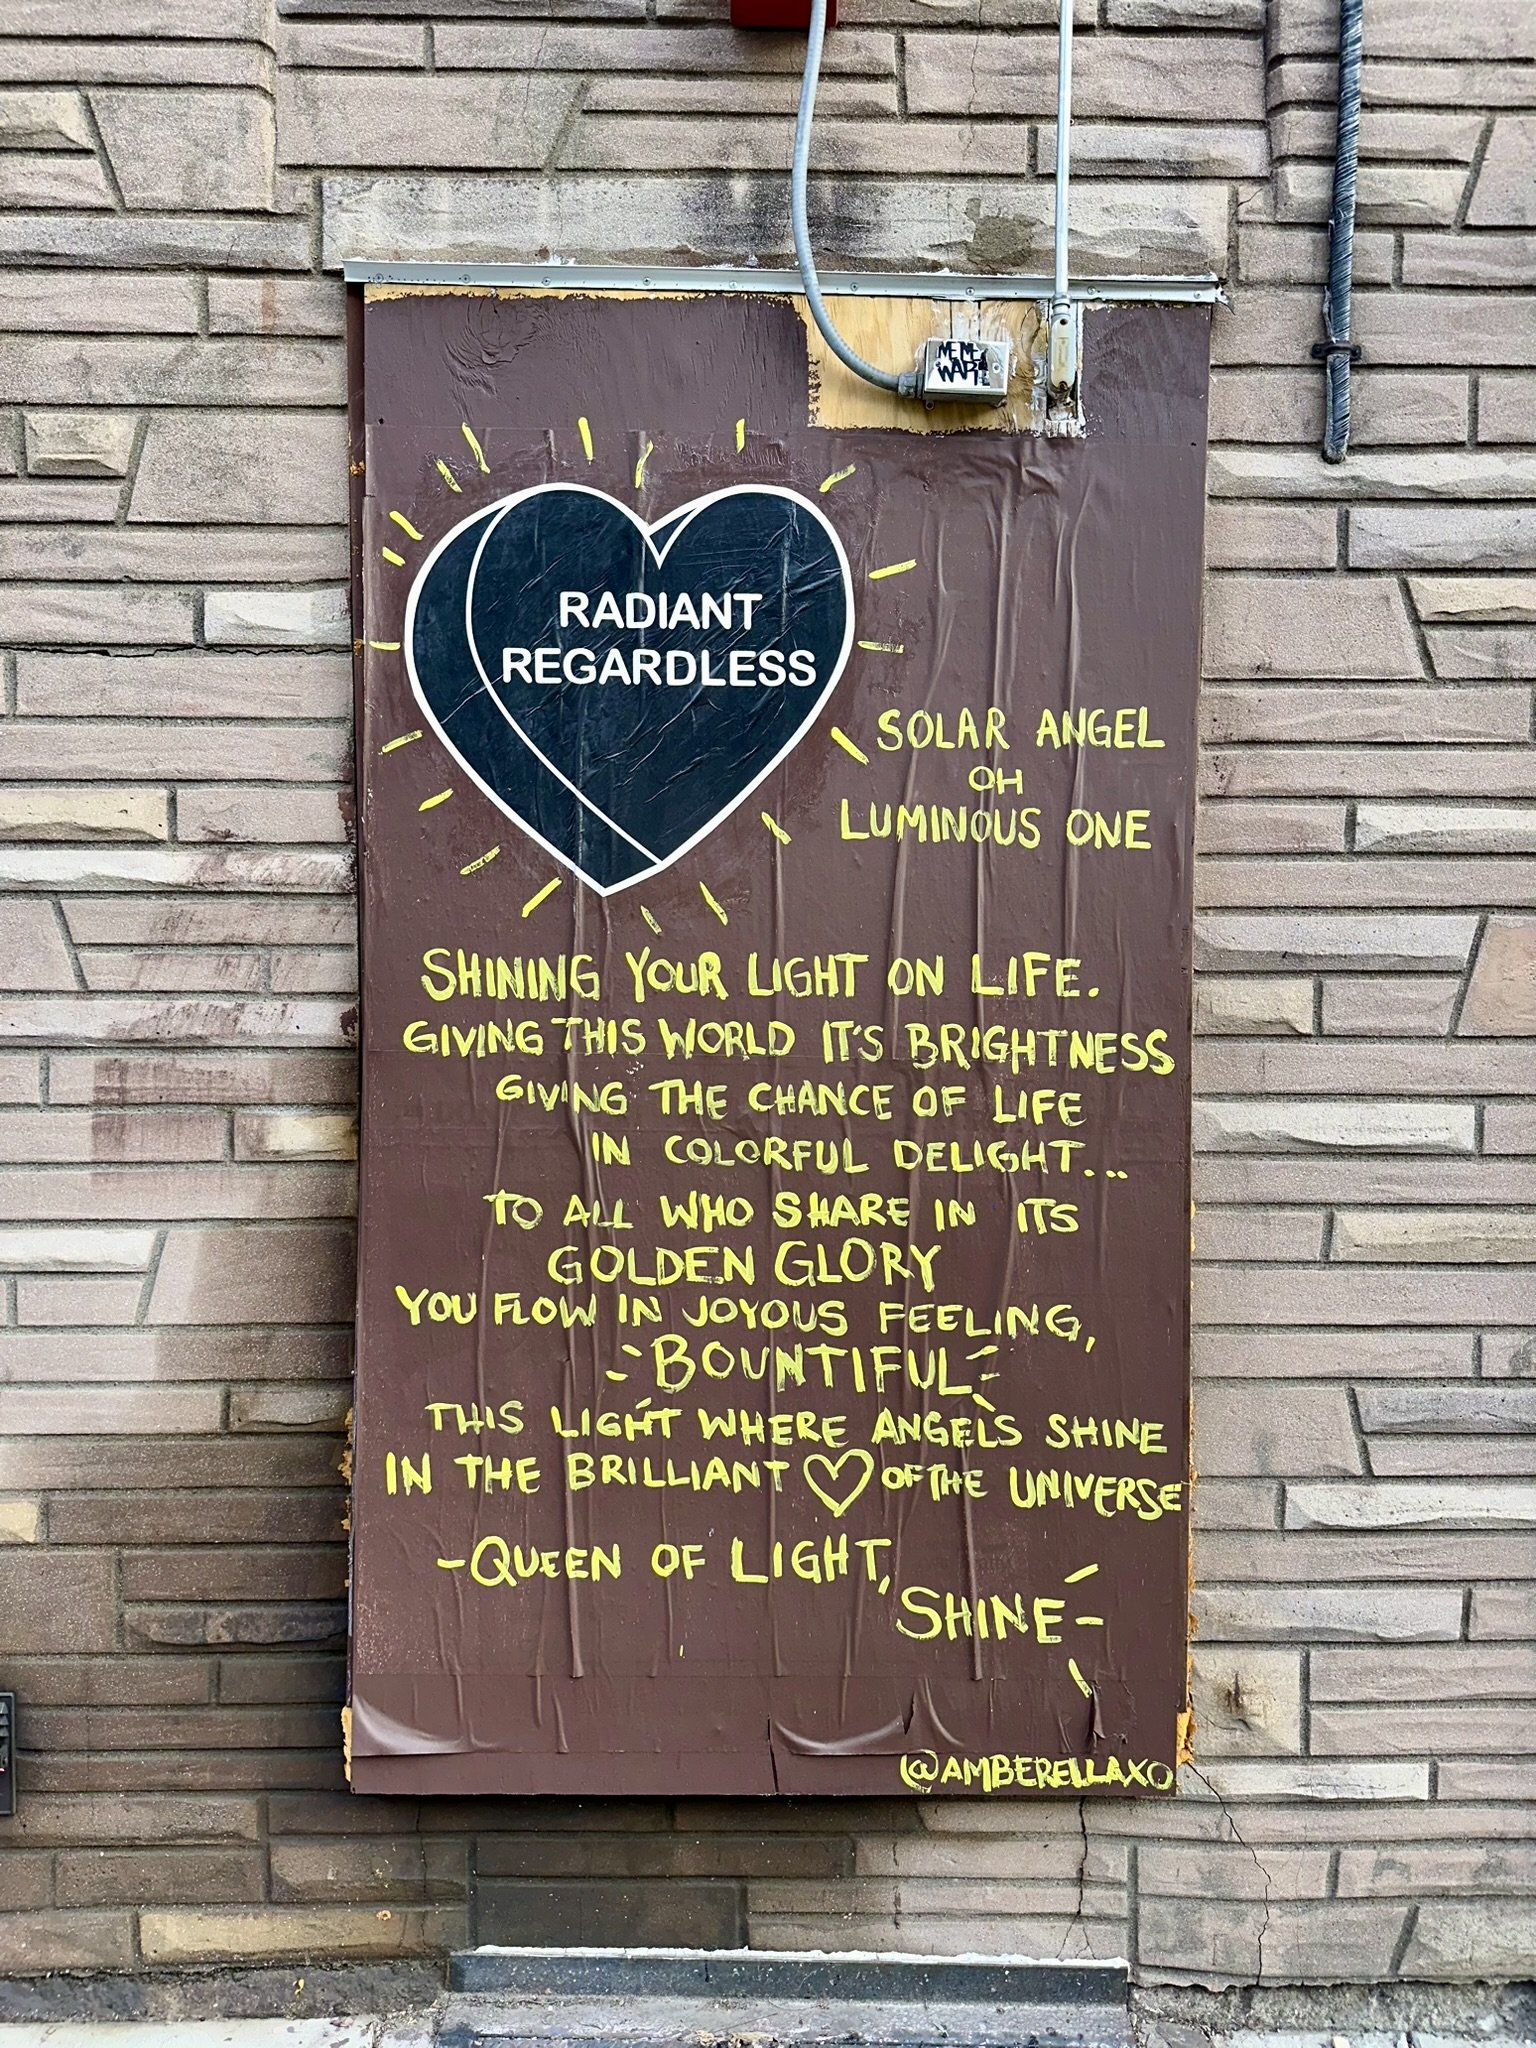 MEME
WAPE
RADIANT
REGARDLESS
SOLAR ANGEL
OH
LUMINOUS ONE
SHINING YOUR LIGHT ON LIFE.
GIVING THIS WORLD IT'S BRIGHTNESS
GIVING THE CHANCE OF LIFE
IN COLORFUL DELIGHT...
TO ALL WHO SHARE IN ITS
GOLDEN GLORY
YOU FLOW IN JOYOUS FEELING,
BOUNTIFUL
THIS LIGHT WHERE ANGELS SHINE
IN THE BRILLIANT ♡ OF THE UNIVERSE
-QUEEN OF LIGHT,
SHINE
@AMBERELLAXO